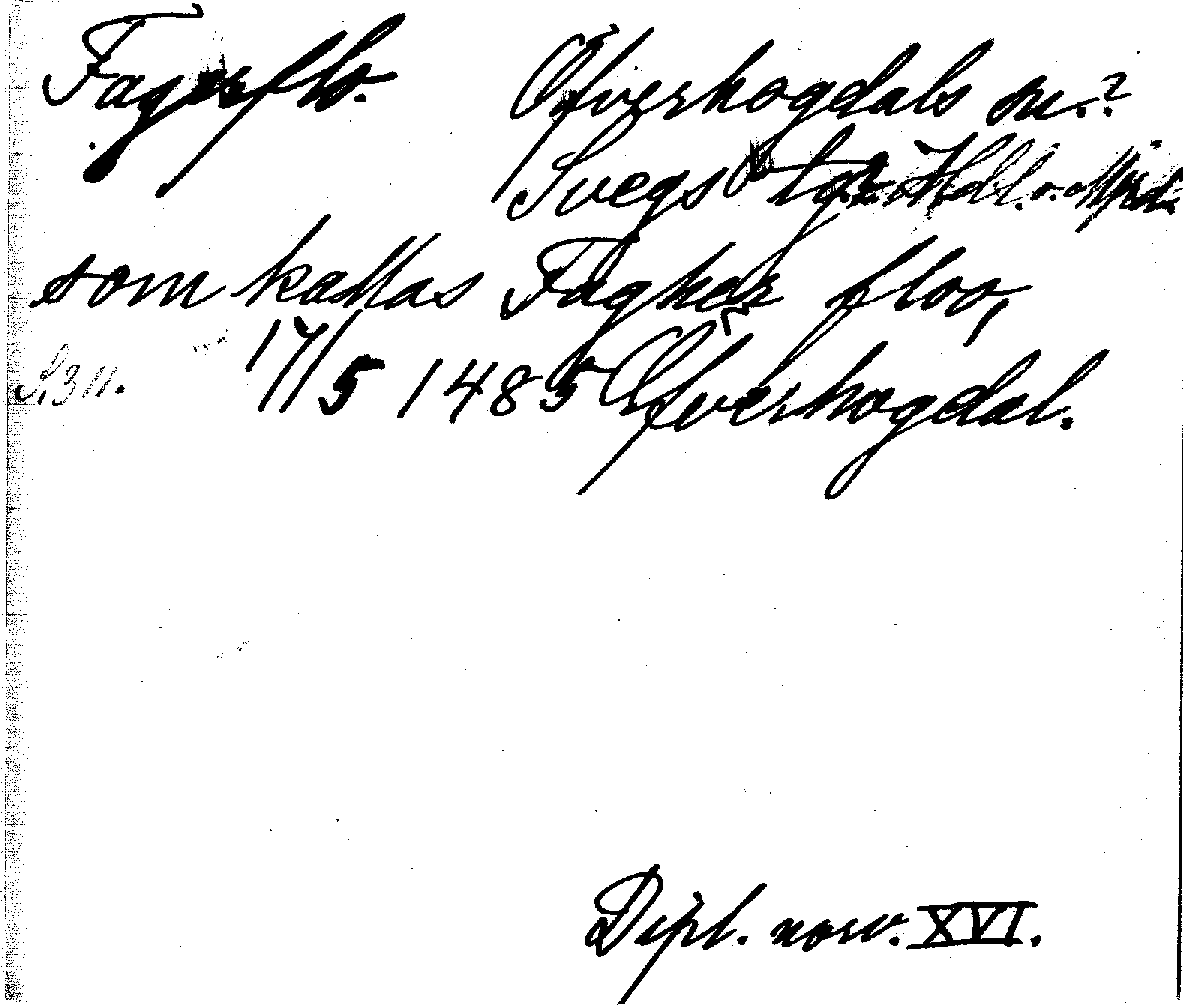 Fagerflo. Öfverhogdals sn.?
Svegs tgl.
som kallas Fagher floo,
S. 311. 17/5 1485 Öfverhogdal.
Dipl. norv. XVI.